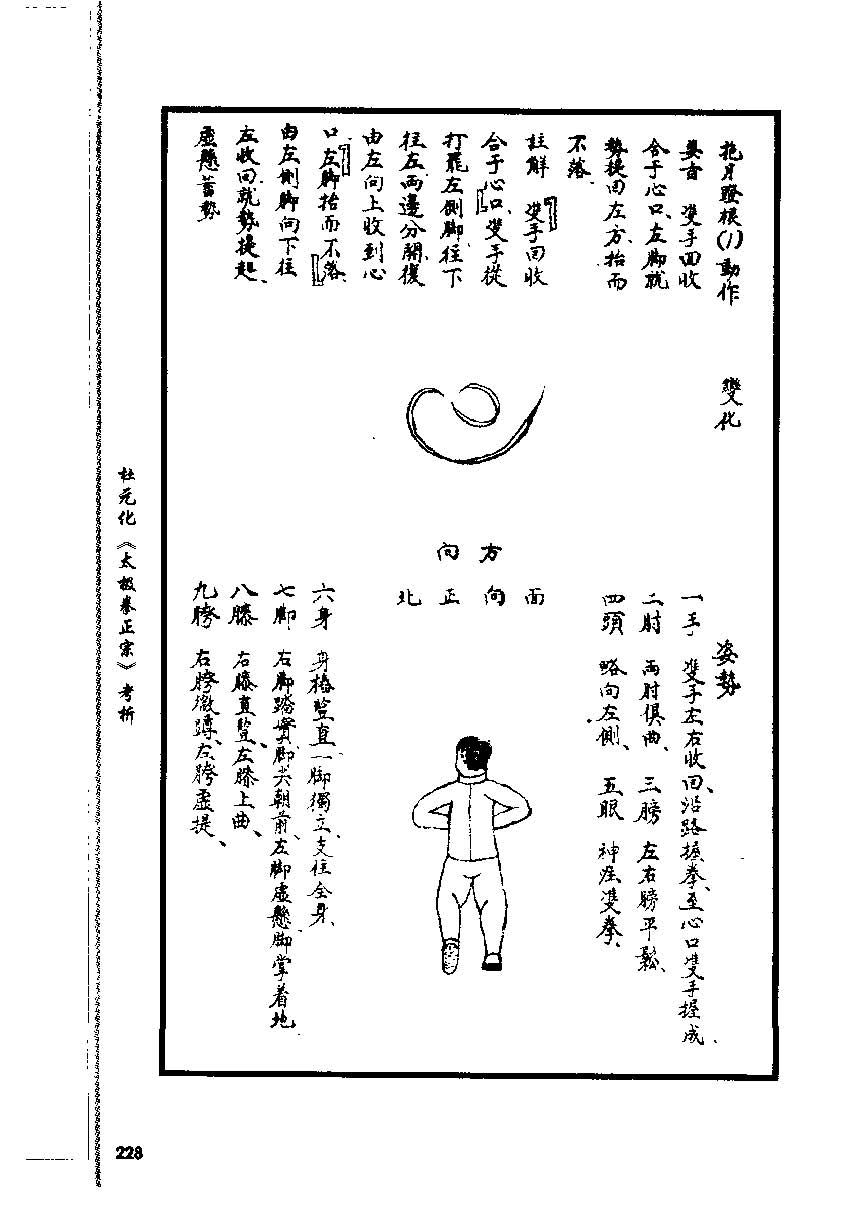 抱月蹬根(1)動作
變化
要言 雙手回收
合于心口、左脚就
勢提回左方、抬而
不落、
註解 雙手回收
合于心口、雙手從
打罷左側脚、往下
往左、兩邊分開、復
由左向上收到心
口、左脚抬而不落、
由左側脚向下往
左收回、就勢提起、
虛懸蓄勢
方向
面向正北
姿勢
一手 雙手左右收回、沿路握拳、至心口雙手握成、
二肘 兩肘俱曲、 三膀 左右膀平鬆、
四頭 略向左側、 五眼 神注雙拳、
六身 身樁豎直、一脚獨立、支住全身、
七脚 右脚踏實、脚尖朝前、左脚虛懸、脚掌着地、
八膝 右膝直豎、左膝上曲、
九胯 右胯微蹲、左胯虛提、
杜元化《太极拳正宗》考析
228